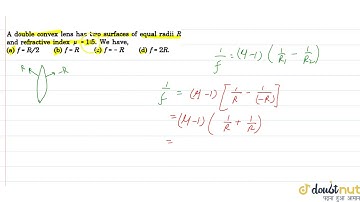 A double convex lens has two surfaces of equal radii R
and refractive index μ = 1·5. We have,
(a) f = R/2 (b) f = R (c) f = – R (d) f = 2R.
1/f = (μ-1) (1/R₁ - 1/R₂)
R R -R
1/f = (μ-1) [1/R - 1/(-R)]
= (μ-1) (1/R + 1/R)
=
doubtnut